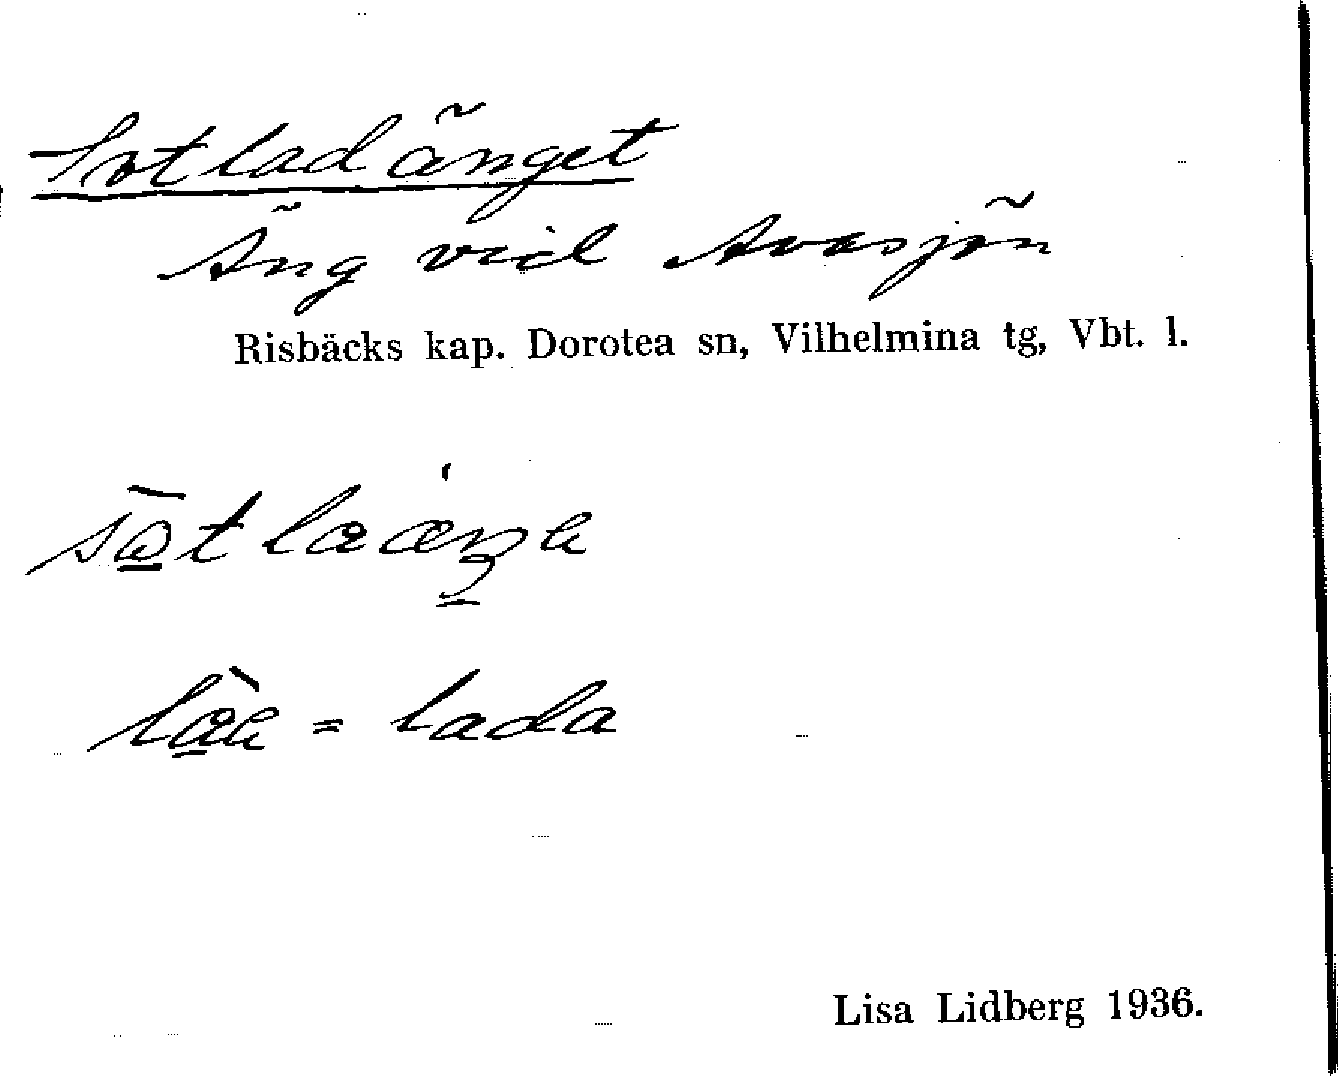 Sotladänget
Äng vid Avasjön
Risbäcks kap. Dorotea sn, Vilhelmina tg, Vbt. l.
= lada
Lisa Lidberg 1936.